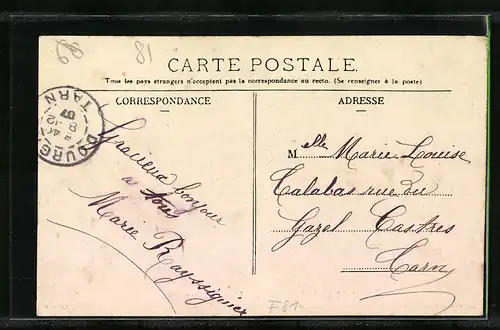 81
CARTE POSTALE
Tous les pays étrangers n'acceptent pas la correspondance au recto. (Se renseigner à la poste)
CORRESPONDANCE
ADRESSE
DOURG
8-12
07
TARN
Gracieux bonjour
a tous
Marie Rayssiguier
Melle Marie Louise
Calabas rue du
Gazel Castres
Tarn
F81